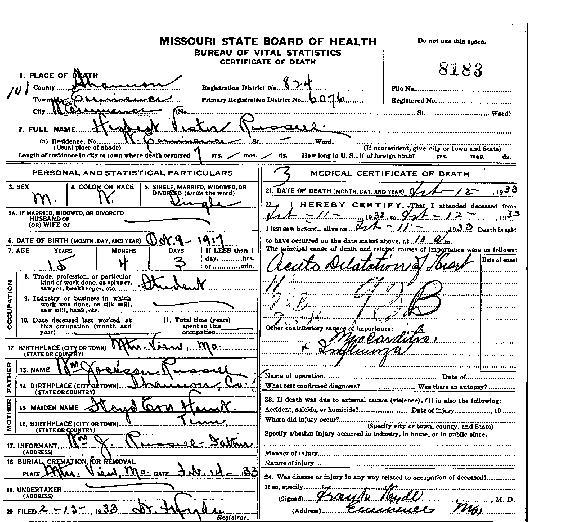 MISSOURI STATE BOARD OF HEALTH
Do not use this space.
BUREAU OF VITAL STATISTICS
CERTIFICATE OF DEATH
8183
1. PLACE OF DEATH
County Shannon Registration District No. 824 File No.
Town Primary Registration District No. 6076 Registered No.
City (No. St. Ward)
2. FULL NAME Russell
(a) Residence. No. St. Ward.
(Usual place of abode) (If nonresident, give city or town and State)
Length of residence in city or town where death occurred yrs. mos. ds. How long in U. S., if of foreign birth? yrs. mos. ds.
PERSONAL AND STATISTICAL PARTICULARS
3. SEX
M.
4. COLOR OR RACE
W.
5. SINGLE, MARRIED, WIDOWED, OR DIVORCED (write the word)
Single
5A. IF MARRIED, WIDOWED, OR DIVORCED
HUSBAND OF
(OR) WIFE OF
6. DATE OF BIRTH (MONTH, DAY, AND YEAR) Oct. 9 - 1917
7. AGE YEARS MONTHS DAYS If LESS than 1 day, hrs. or min.
15 4 3
OCCUPATION
8. Trade, profession, or particular kind of work done, as spinner, sawyer, bookkeeper, etc. Student
9. Industry or business in which work was done, as silk mill, saw mill, bank, etc.
10. Date deceased last worked at this occupation (month and year)
11. Total time (years) spent in this occupation
12. BIRTHPLACE (CITY OR TOWN) Mtn. View, Mo.
(STATE OR COUNTRY)
FATHER
13. NAME Wm Jackson Russell
14. BIRTHPLACE (CITY OR TOWN) Shannon Co.
(STATE OR COUNTRY)
MOTHER
15. MAIDEN NAME
16. BIRTHPLACE (CITY OR TOWN) Tenn
(STATE OR COUNTRY)
17. INFORMANT Wm J. Russell
(ADDRESS)
18. BURIAL, CREMATION, OR REMOVAL
PLACE Mtn. View, Mo. DATE Feb. 14 - 33
19. UNDERTAKER
(ADDRESS)
20. FILED 2-13-1933
Registrar.
3 MEDICAL CERTIFICATE OF DEATH
21. DATE OF DEATH (MONTH, DAY, AND YEAR) Feb - 12 - 1933
22. I HEREBY CERTIFY, That I attended deceased from
Feb - 11 - 1933 to Feb - 12 - 1933
I last saw h alive on Feb - 11 - 1933 Death is said
to have occurred on the date stated above, at
The principal cause of death and related causes of importance were as follows:
Date of onset
Acute Dilatation of Heart
Other contributory causes of importance:
Myocarditis
Influenza
Name of operation Date of
What test confirmed diagnosis? Was there an autopsy?
23. If death was due to external causes (violence), fill in also the following:
Accident, suicide, or homicide? Date of injury 19
Where did injury occur?
(Specify city or town, county, and State)
Specify whether injury occurred in industry, in home, or in public place.
Manner of injury
Nature of injury
24. Was disease or injury in any way related to occupation of deceased?
If so, specify
(Signed) Hyde M. D.
(Address) Eminence Mo.